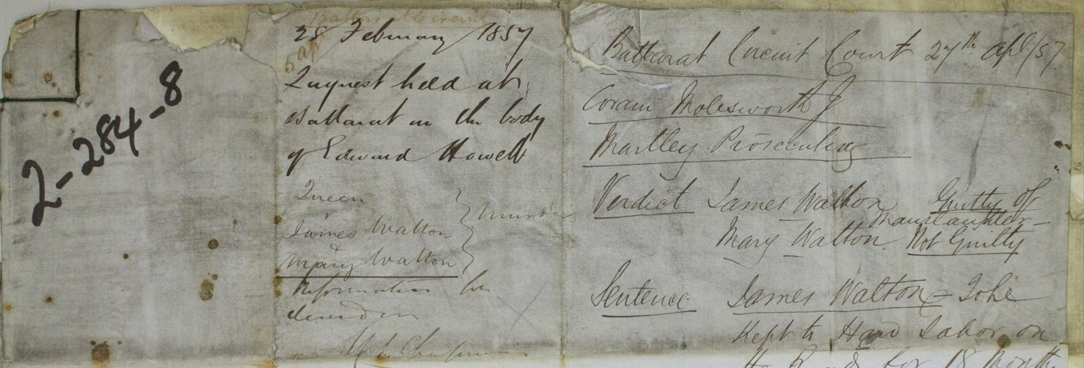 2-284-8
28 February 1857
Inquest held at
Ballarat on the body
of Edward Howell
Queen
James Walton
Mary Walton
Murder
Information for
Ballarat Circuit Court 27th Apl/57
Coram Molesworth J
Martley Prosecuting
Verdict James Walton Guilty of
Manslaughter
Mary Walton Not Guilty
Sentence James Walton - To be
Kept to Hard Labor on
the Roads for 18 Months